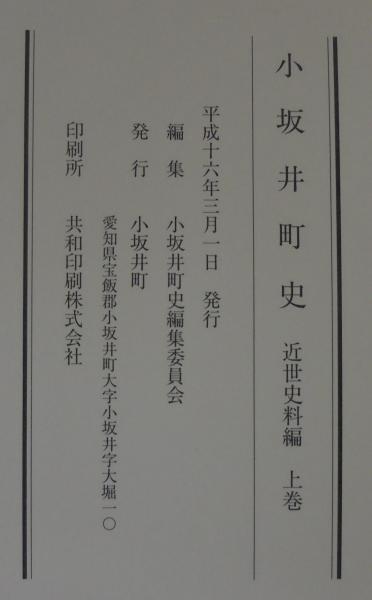 小坂井町史 近世史料編 上巻
平成十六年三月一日 発行
編集 小坂井町史編集委員会
発行 小坂井町
愛知県宝飯郡小坂井町大字小坂井字大堀一〇
印刷所 共和印刷株式会社